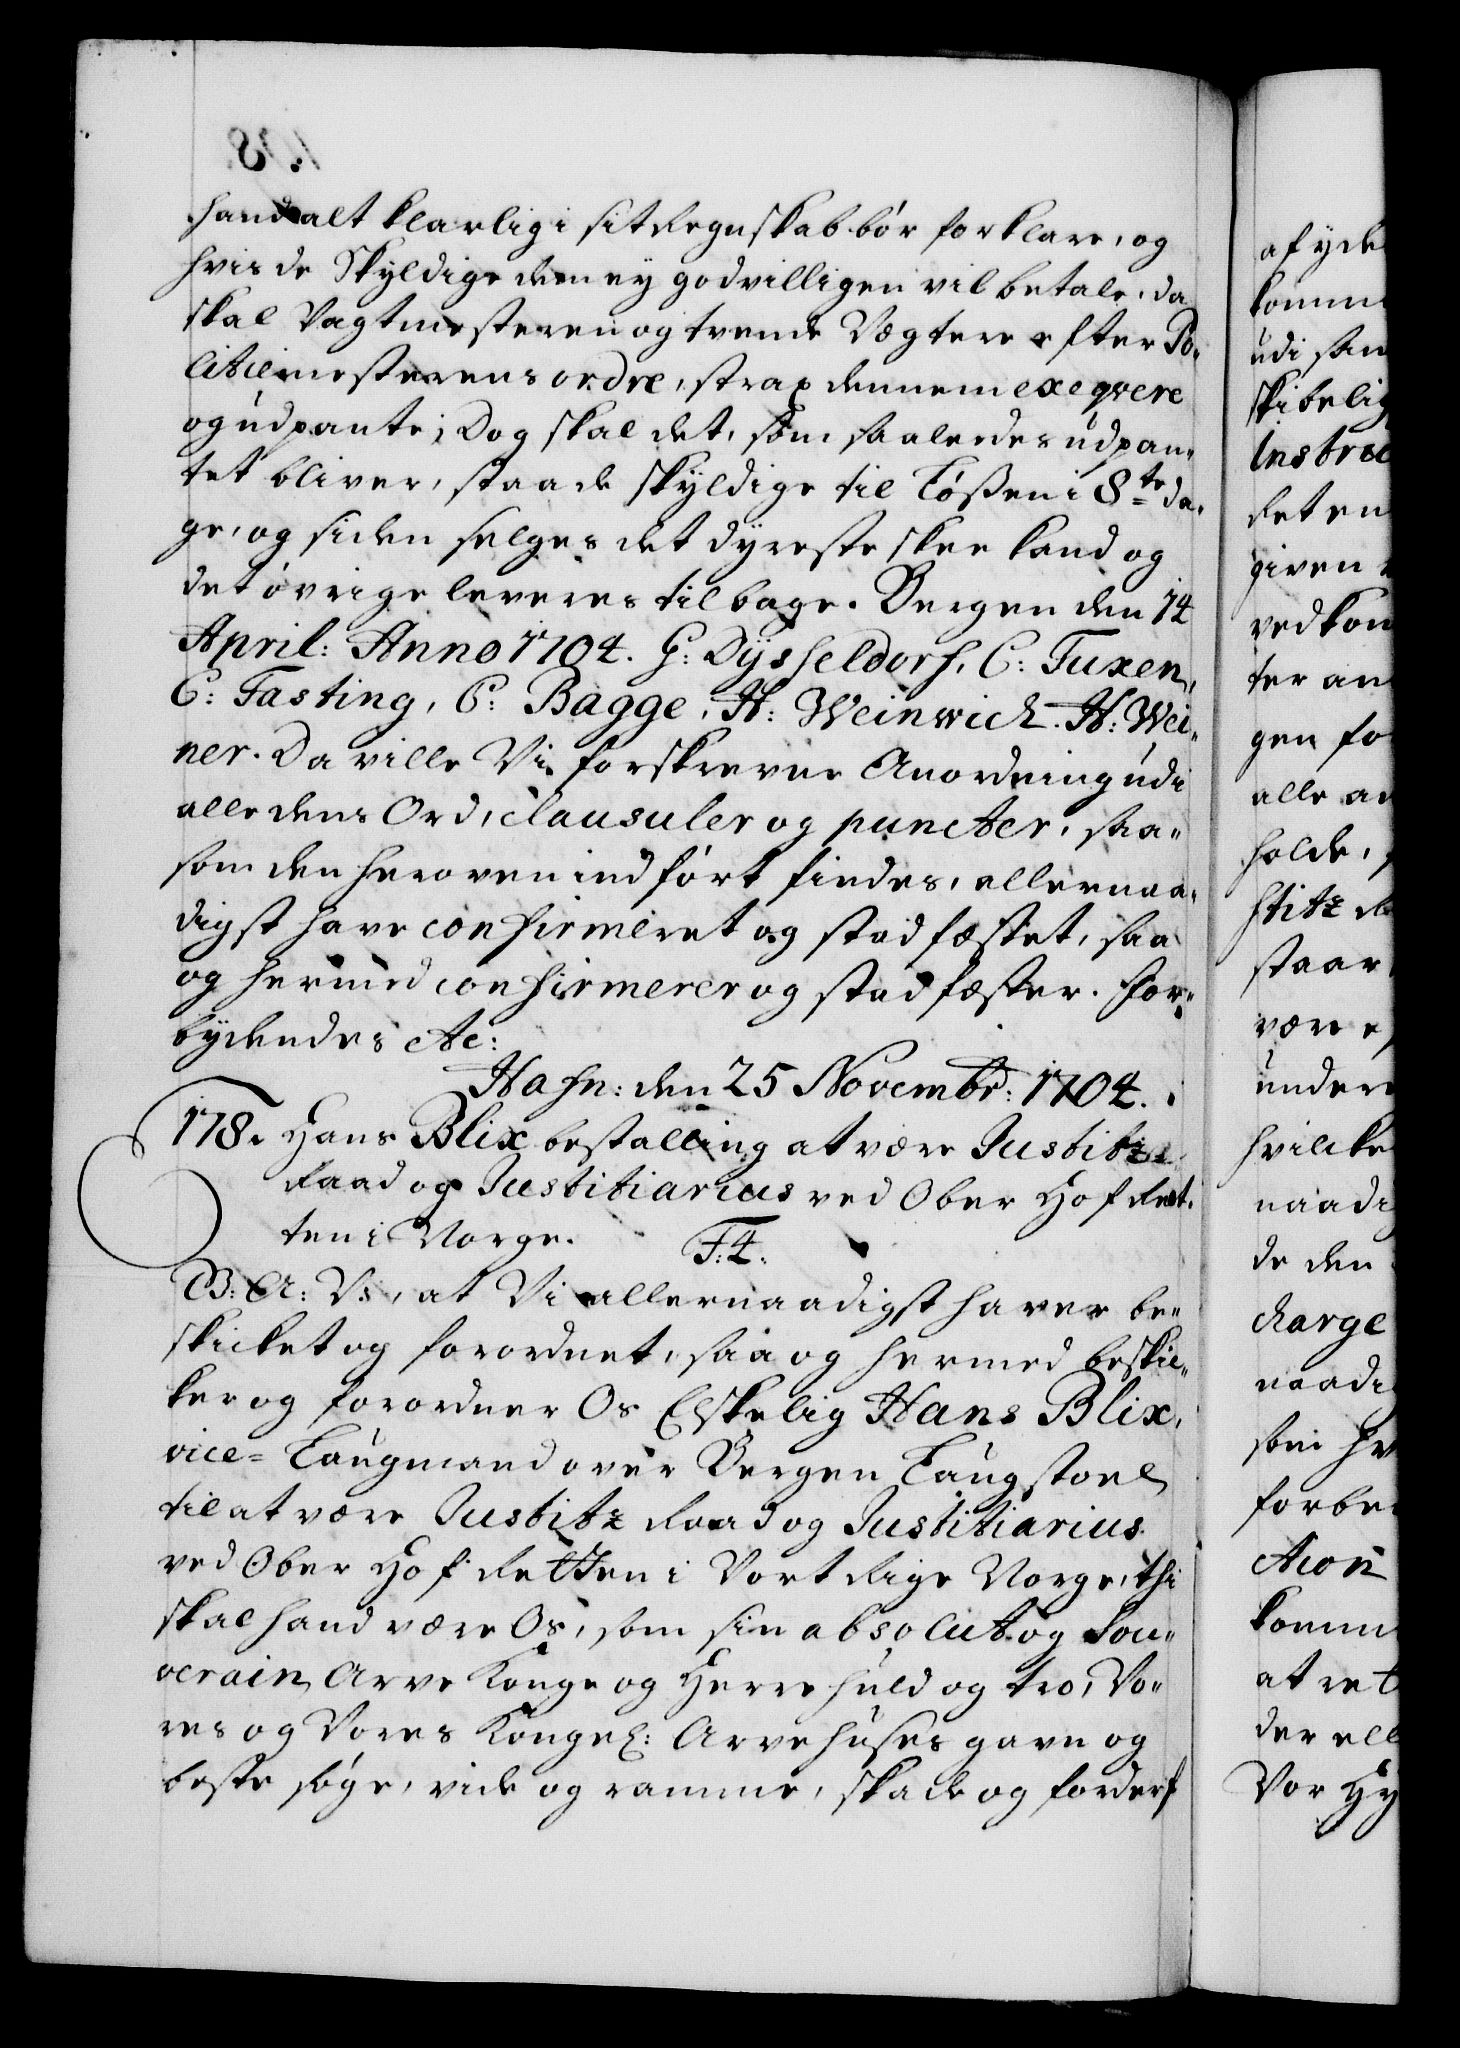 hand alt klarlig i sit Regnskab bør forklare, og
hvis de Skyldige dem ey godvilligen vil betale, da
skal Vagtmesteren og tvende Vægtere efter Po-
litiemesterens ordre, strax dennem exeqvere
og udpante; Dog skal det, som saaledes udpan-
tet bliver, staa de skyldige til Løßen i 8te da-
ge, og siden selges det dyreste skee kand og
det øvrige leveres tilbage. Bergen den 14
April: Anno 1704. G: Dysseldorf, C: Tuxen,
C: Fasting, C: Bagge, H: Weinwich. H: Wei-
ner. Da ville Vi forskrevne Anordning udi
alle dens Ord, clausuler og puncter, saa-
som den heroven indført findes, allernaa-
digst have confirmeret og stadfæstet, saa
og hermed confirmerer og stadfæster. For-
bydendes etc:
Hafn: den 25 Novembr: 1704.
178. Hans Blix bestalling at være Justitz
Raad og Justitiarius ved Ober Hof Ret-
ten i Norge. F:4.
G: A: V:, at Vi allernaadigst haver be-
skicket og forordnet, saa og hermed beskic-
ker og forordner Os Elskelig Hans Blix,
vice-Laugmand over Bergen Laugstoel
til at være Justitz Raad og Justitiarius
ved Ober Hof Retten i Vort Rige Norge, thi
skal hand være Os, som sin absolut og Sou-
verain Arve Konge og Herre huld og tro, Vo-
res og Vores Kongel: Arvehuses gavn og
beste søge, vide og ramme, skade og forderf
afyde
komme
udi saa
skibelig
Instruc
det en
given
vedkom
ter an
gen fo
alle an
holde,
stitz
staar
være
under
hvilcke
naadi
de den
charge
naadi
som hv
forbe
komm
at ret
der ell
Vor Hy